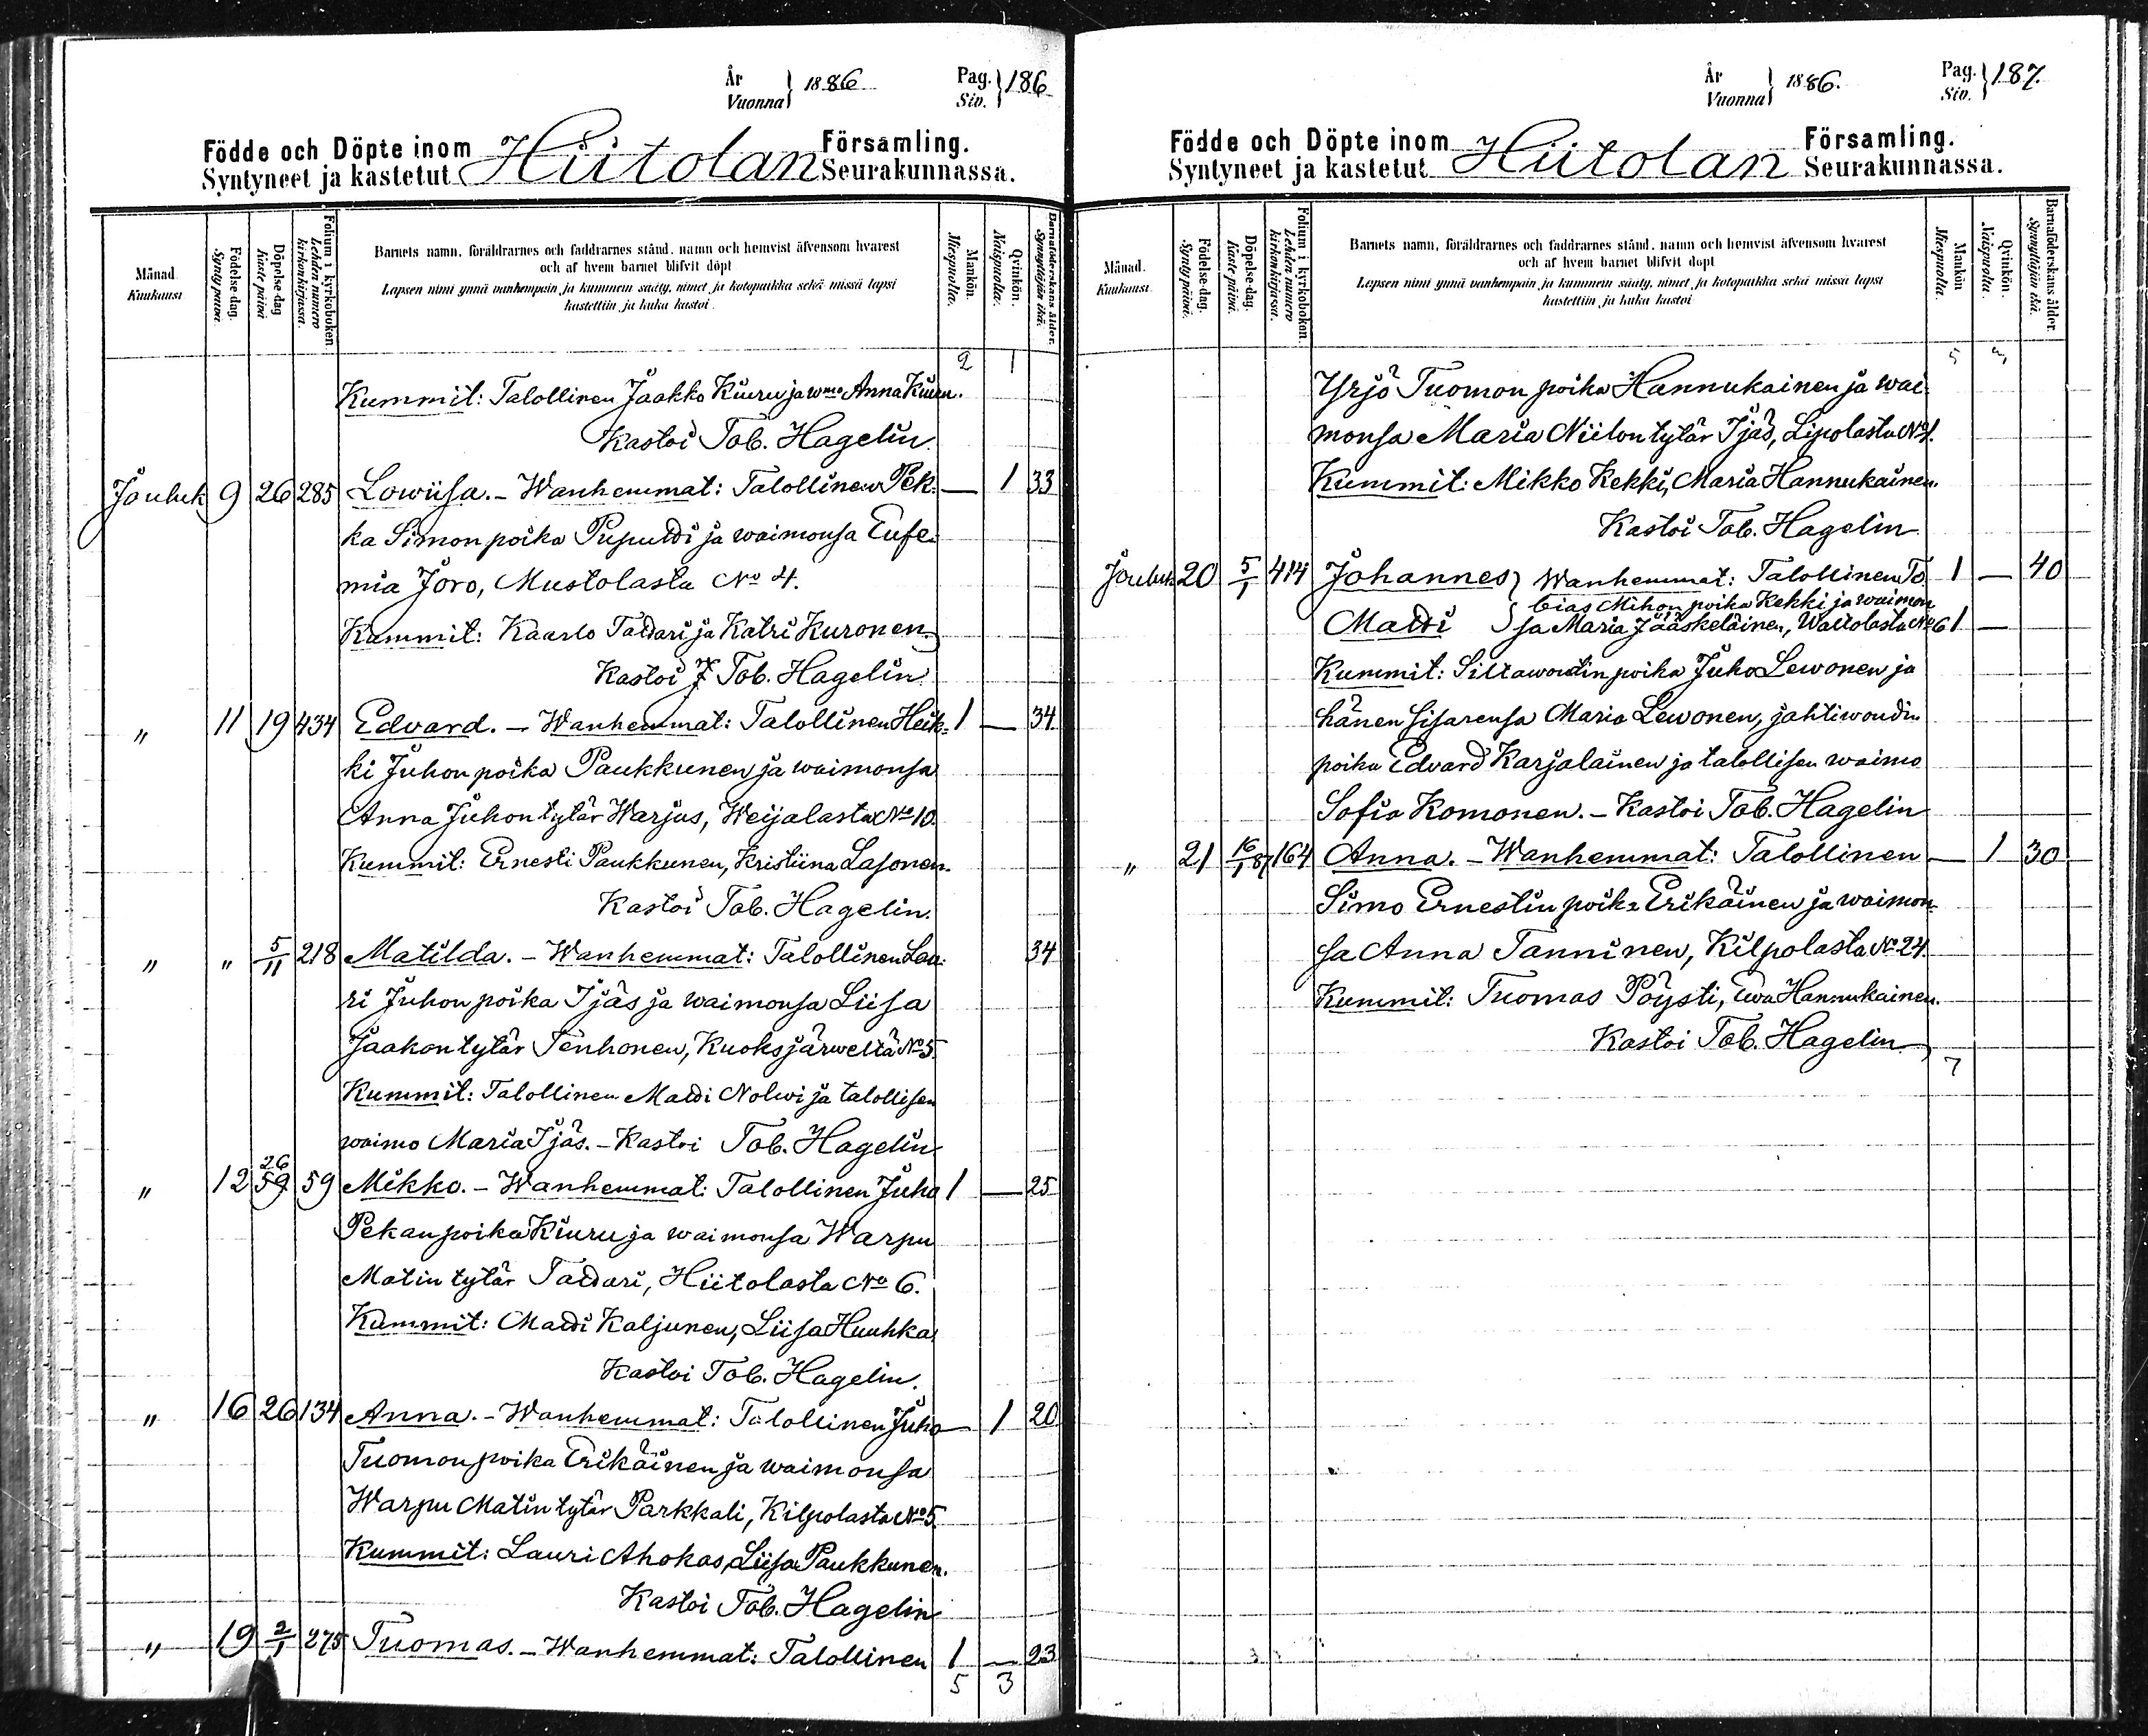 År
Vuonna } 1886
Pag.
Siv. } 186
Födde och Döpte inom Hiitolan Församling.
Syntyneet ja kastetut Seurakunnassa.
Månad.
Kuukausi.
Födelse-dag.
Synty päivä.
Döpelse-dag
Kaste päivä
Folium i kyrkoboken.
Lehden numero
kirkonkirjassa.
Barnets namn, föräldrarnes och faddrarnes stånd, namn och hemvist äfvensom hvarest
och af hvem barnet blifvit döpt
Lapsen nimi ynnä vanhempain ja kummein sääty, nimet ja kotopaikka sekä missä lapsi
kastettiin ja kuka kastoi.
Mankön.
Miespuolta.
Qvinkön.
Naispuolta.
Barnaföderskans ålder.
Synnyttäjän ikä.
2 1
Kummit: Talollinen Jaakko Kiuru ja wmo Anna Kiuru.
Kastoi Tob. Hagelin
Jouluk 9 26 285 Lowiisa. – Wanhemmat: Talollinen Pek- — 1 33
ka Simon poika Pupuddi ja waimonsa Eufe-
mia Joro, Mustolasta No 4.
Kummit: Kaarlo Taddari ja Katri Kuronen.
Kastoi Tob. Hagelin
" 11 19 434 Edvard. – Wanhemmat: Talollinen Heik- 1 — 34
ki Juhon poika Paukkunen ja waimonsa
Anna Juhon tytär Warjus, Weijalasta No 10.
Kummit: Ernesti Paukkunen, Kristiina Lasonen.
Kastoi Tob. Hagelin.
" " 5/11 218 Matilda. – Wanhemmat: Talollinen Lau- 34
ri Juhon poika Ijäs ja waimonsa Liisa
Jaakon tytär Tenhonen, Kuoksjärweltä No 5
Kummit: Talollinen Maddi Nolwi ja talollisen
waimo Maria Ijäs. – Kastoi Tob. Hagelin
26
" 12 59 59 Mikko. – Wanhemmat: Talollinen Juho 1 — 25
Pekan poika Kiuru ja waimonsa Warpu
Matin tytär Taddari, Hiitolasta No 6.
Kummit: Maddi Kaljunen, Liisa Huuhka
Kastoi Tob. Hagelin.
" 16 26 134 Anna. – Wanhemmat: Talollinen Juho — 1 20
Tuomon poika Erikäinen ja waimonsa
Warpu Matin tytär Parkkali, Kilpolasta No 5.
Kummit: Lauri Ahokas, Liisa Paukkunen.
Kastoi Tob. Hagelin
" 19 2/1 275 Tuomas. – Wanhemmat: Talollinen 1 — 23
5 3
År
Vuonna } 1886.
Pag.
Siv. } 187.
Födde och Döpte inom Hiitolan Församling.
Syntyneet ja kastetut Seurakunnassa.
Månad.
Kuukausi.
Födelse-dag.
Synty päivä.
Döpelse-dag.
Kaste päivä.
Folium i kyrkobokan.
Lehden numero
kirkonkirjassa.
Barnets namn, föräldrarnes och faddrarnes stånd, namn och hemvist äfvensom hvarest
och af hvem barnet blifvit döpt
Lapsen nimi ynnä vanhempain ja kummein sääty, nimet ja kotopaikka sekä missä lapsi
kastettiin ja kuka kastoi
Mankön
Miespuolta.
Qvinkön.
Naispuolta.
Barnaföderskans ålder.
Synnyttäjän ikä.
5 3
Yrjö Tuomon poika Hannukainen ja wai-
monsa Maria Niilon tytär Ijäs, Lipolasta No 1.
Kummit: Mikko Kekki, Maria Hannukainen.
Kastoi Tob. Hagelin
Jouluk 20 5/1 414 Johannes } Wanhemmat: Talollinen To- 1 — 40
bias Mihon poika Kekki ja waimon
Maddi } sa Maria Jääskeläinen, Waltolasta No 6 1 —
Kummit: Siltawoudin poika Juho Lewonen ja
hänen sisarensa Maria Lewonen, jahtiwoudin
poika Edvard Karjalainen ja talollisen waimo
Sofia Komonen. – Kastoi Tob. Hagelin
" 21 16/1 87 164 Anna. – Wanhemmat: Talollinen — 1 30
Simo Ernestin poika Erikäinen ja waimon-
sa Anna Tanninen, Kilpolasta No 24.
Kummit: Tuomas Pöysti, Ewa Hannukainen.
Kastoi Tob. Hagelin
7